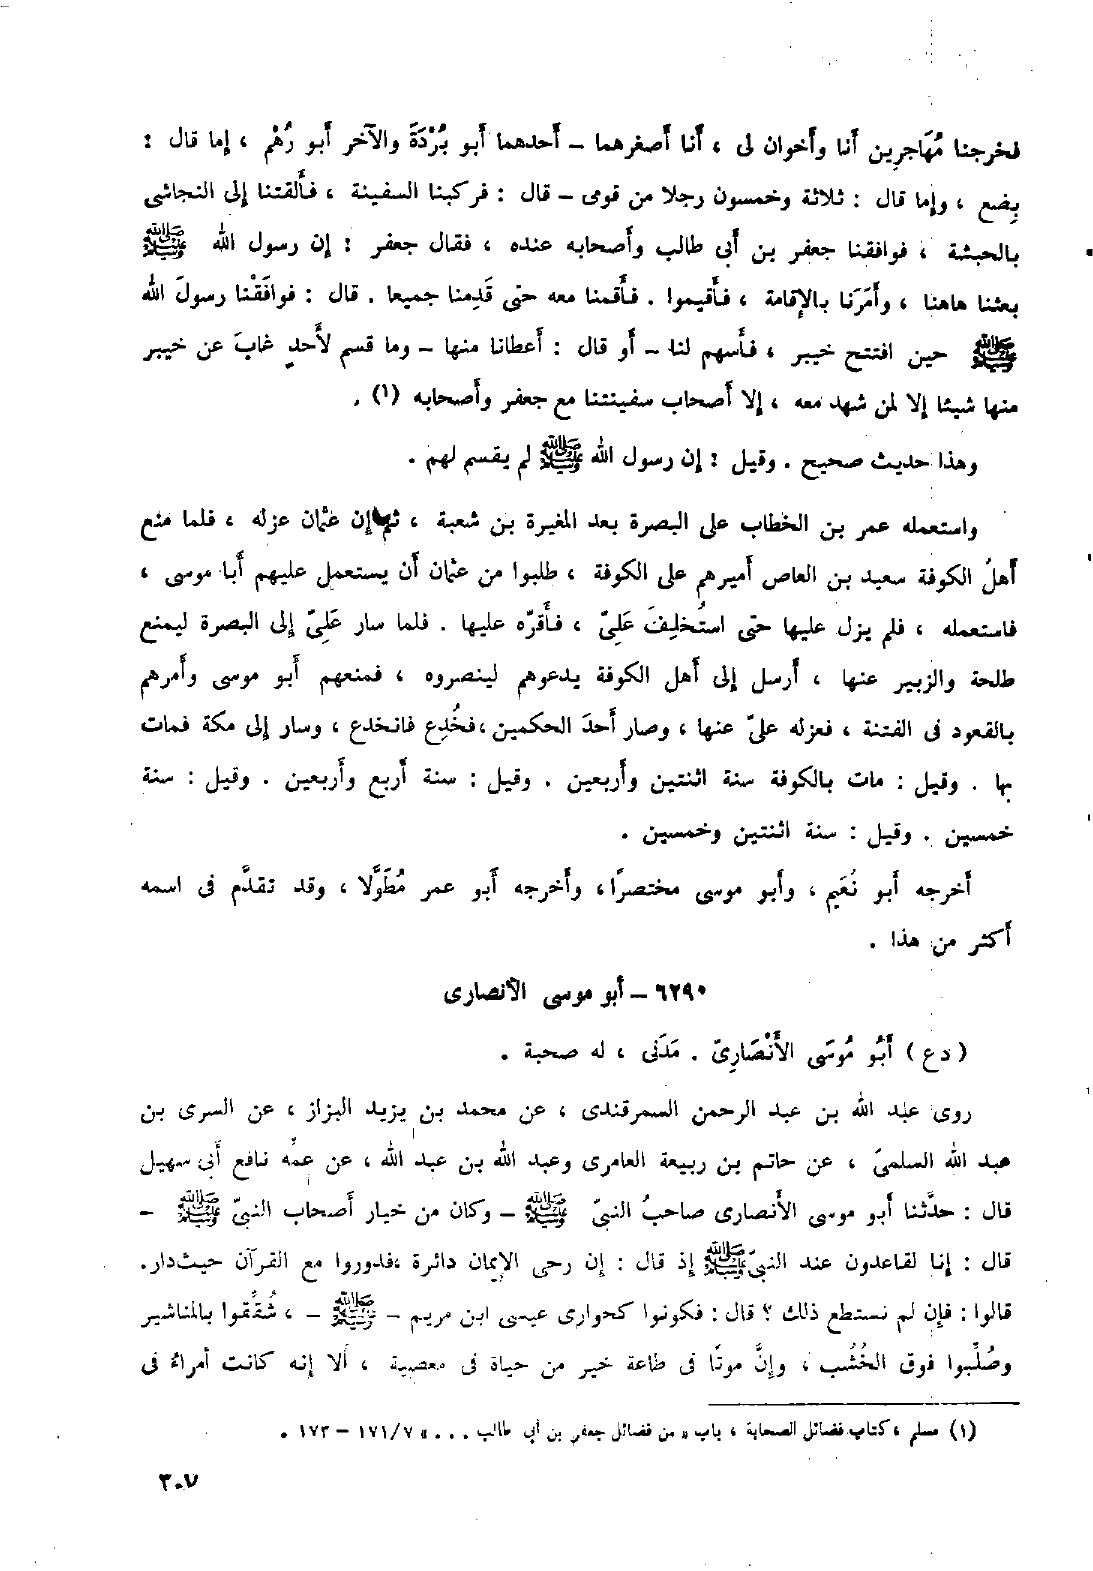 فخرجنا مُهَاجرِين أنا وأخوان لى ، أنا أصغرهما – أحدهما أبو بُرْدَةَ والآخر أبو رُهْم ، إما قال :
بِضع ، وإما قال : ثلاثة وخمسون رجلا من قومى – قال : فركبنا السفينة ، فألقتنا إلى النجاشى
بالحبشة ، فوافقنا جعفر بن أبى طالب وأصحابه عنده ، فقال جعفر : إن رسول الله ﷺ
بعثنا هاهنا ، وأمَرَنا بالإقامة ، فأقيموا . فأقمنا معه حتى قَدِمنا جميعا . قال : فوافَقْنا رسولَ الله
ﷺ حين افتتح خيبر ، فأسهم لنا – أو قال : أعطانا منها – وما قسم لأحدٍ غابَ عن خيبر
منها شيئا إلا لمن شهد معه ، إلا أصحاب سفينتنا مع جعفر وأصحابه (١) .
وهذا حديث صحيح . وقيل : إن رسول الله ﷺ لم يقسم لهم .
واستعمله عمر بن الخطاب على البصرة بعد المغيرة بن شعبة ، ثم إن عثمان عزله ، فلما منع
أهلُ الكوفة سعيد بن العاص أميرهم على الكوفة ، طلبوا من عثمان أن يستعمل عليهم أبا موسى ،
فاستعمله ، فلم يزل عليها حتى استُخلِفَ عَلِىّ ، فأقرّه عليها . فلما سار عَلِىّ إلى البصرة ليمنع
طلحة والزبير عنها ، أرسل إلى أهل الكوفة يدعوهم لينصروه ، فمنعهم أبو موسى وأمرهم
بالقعود فى الفتنة ، فعزله علىّ عنها ، وصار أحدَ الحكمين ، فخُدِع فانخدع ، وسار إلى مكة فمات
بها . وقيل : مات بالكوفة سنة اثنتين وأربعين . وقيل : سنة أربع وأربعين . وقيل : سنة
خمسين . وقيل : سنة اثنتين وخمسين .
أخرجه أبو نُعَيم ، وأبو موسى مختصرًا ، وأخرجه أبو عمر مُطَوَّلا ، وقد تقدَّم فى اسمه
أكثر من هذا .
٦٢٩٠ – أبو موسى الأنصارى
( دع ) أَبُو مُوسَى الأَنْصَارِىّ . مَدَنى ، له صحبة .
روى عبد الله بن عبد الرحمن السمرقندى ، عن محمد بن يزيد البزاز ، عن السرى بن
عبد الله السلمىّ ، عن حاتم بن ربيعة العامرى وعبد الله بن عبد الله ، عن عمّه نافع أبى سهيل
قال : حدَّثنا أبو موسى الأنصارى صاحبُ النبىّ ﷺ – وكان من خيار أصحاب النبىّ ﷺ –
قال : إنا لقاعدون عند النبىّ ﷺ إذ قال : إن رحى الإيمان دائرة ، فدوروا مع القرآن حيث دار.
قالوا : فإن لم نستطع ذلك ؟ قال : فكونوا كحوارى عيسى ابن مريم – ﷺ – ، شُقِّقوا بالمناشير
وصُلِّبوا فوق الخُشُب ، وإنَّ موتًا فى طاعة خير من حياة فى معصية ، ألا إنه كانت أمراءُ فى
(١) مسلم ، كتاب فضائل الصحابة ، باب « من فضائل جعفر بن أبى طالب . . . » ١٧١/٧ – ١٧٣ .
٣٠٧